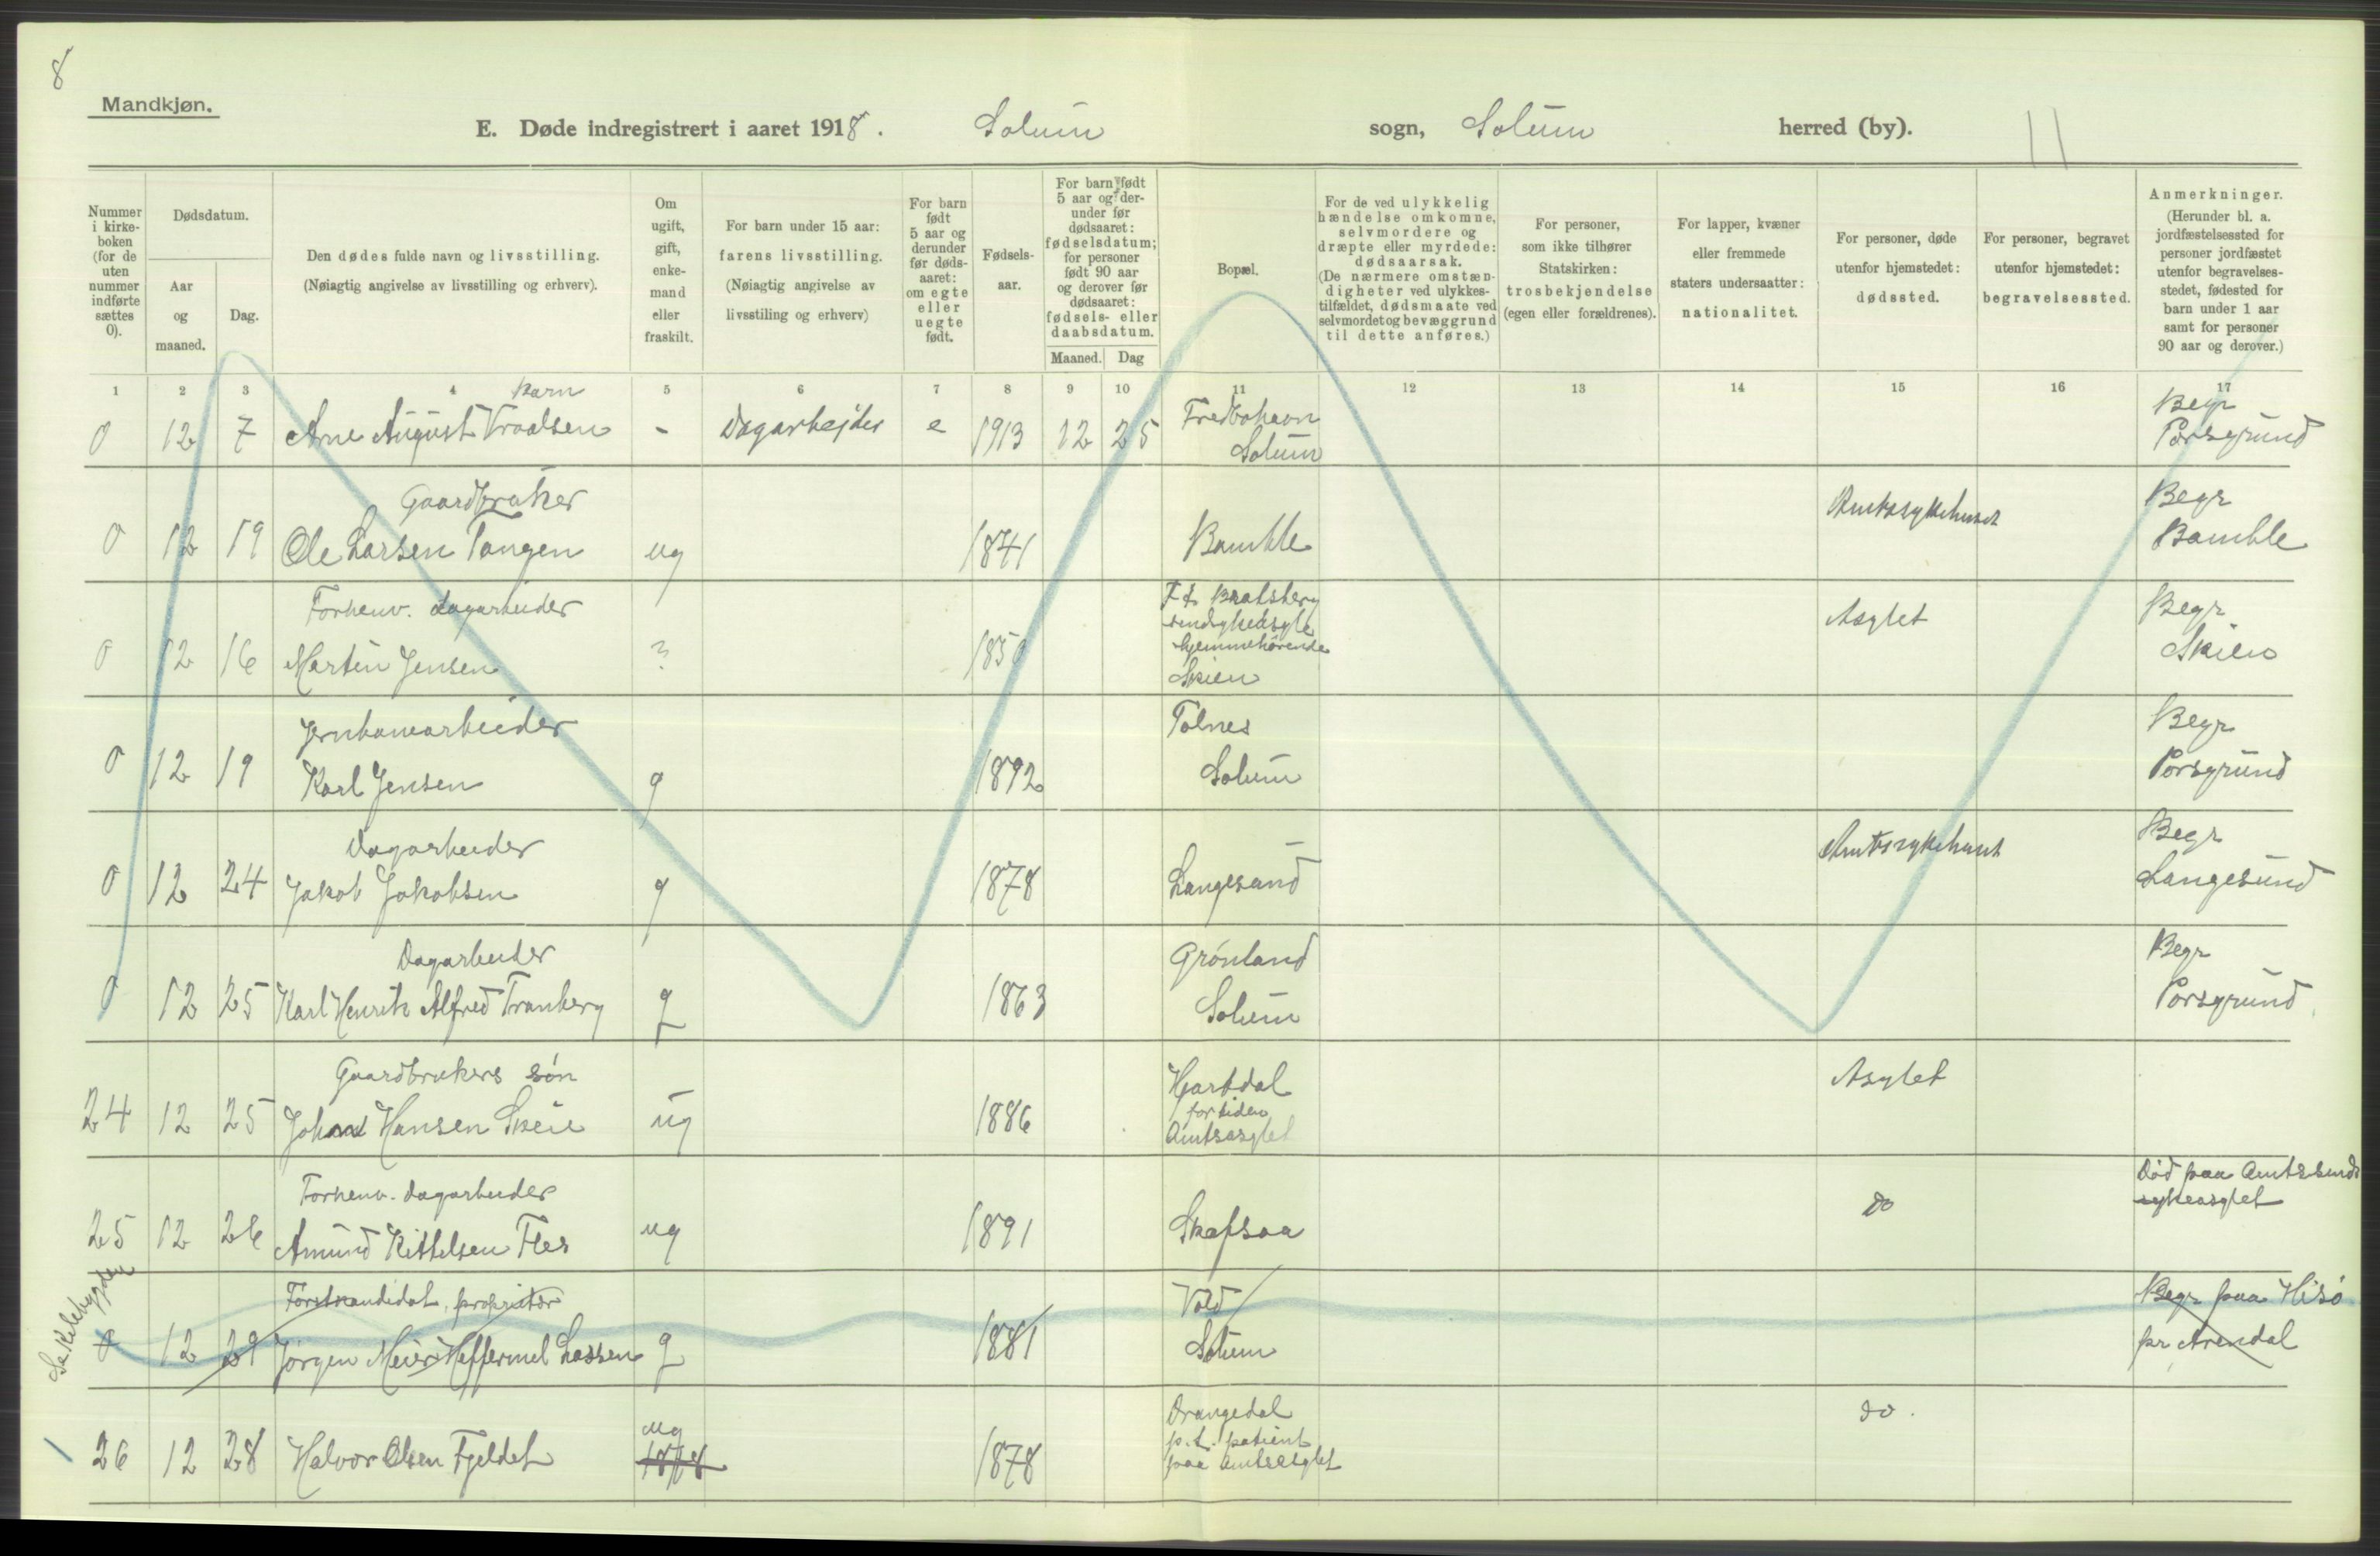 8
Mandkjøn.
E. Døde indregistrert i aaret 1918. Solum sogn, Solum herred (by). 11
Nummer i kirkeboken (for de uten nummer indførte sættes 0).
Dødsdatum.
Aar og maaned.
Dag.
Den dødes fulde navn og livsstilling.
(Nøiagtig angivelse av livsstilling og erhverv).
Om ugift, gift, enkemand eller fraskilt.
For barn under 15 aar: farens livsstilling.
(Nøiagtig angivelse av livsstiling og erhverv)
For barn født 5 aar og derunder før dødsaaret: om egte eller uegte født.
Fødselsaar.
For barn født 5 aar og derunder før dødsaaret: fødselsdatum; for personer født 90 aar og derover før dødsaaret: fødsels- eller daabsdatum.
Maaned. Dag
Bopæl.
For de ved ulykkelig hændelse omkomne, selvmordere og dræpte eller myrdede: dødsaarsak.
(De nærmere omstændigheter ved ulykkestilfældet, dødsmaate ved selvmordet og bevæggrund til dette anføres.)
For personer, som ikke tilhører Statskirken: trosbekjendelse (egen eller forældrenes).
For lapper, kvæner eller fremmede staters undersaatter: nationalitet.
For personer, døde utenfor hjemstedet: dødssted.
For personer, begravet utenfor hjemstedet: begravelsessted.
Anmerkninger.
(Herunder bl. a. jordfæstelsessted for personer jordfæstet utenfor begravelsesstedet, fødested for barn under 1 aar samt for personer 90 aar og derover.)
1 2 3 4 5 6 7 8 9 10 11 12 13 14 15 16 17
Barn
0 12 7 Arne August Traalsen - Dagarbejder e 1913 12 25 Fredbohavn Solum Begr Porsgrund
Gaardbruker
0 12 19 Ole Larsen Tangen ug 1841 Bamble Amtssykehuset Begr Bamble
Forhenv. dagarbeider
0 12 16 Martin Jensen ? 1850 Bratsberg sindsykeasyl hjemmehørende Skien Asylet Begr Skien
Jernbanearbeider
0 12 19 Karl Jensen g 1892 Tolnes Solum Begr Porsgrund
Dagarbeider
0 12 24 Jakob Jakobsen g 1878 Langesund Amtssykehuset Begr Langesund
Dagarbeider
0 12 25 Karl Henrik Alfred Tranberg g 1863 Grönland Solum Begr Porsgrund
Gaardbrukers søn
24 12 25 Johan Hansen Skeie ug 1886 Hartdal for tiden Amtsasylet Asylet
Forhenv. dagarbeider
25 12 26 Amund Kittelsen Fles ug 1891 Skafsaa do Død paa Amtssindssykeasylet
Forstkandidat, proprietær
0 12 29 Jørgen Meier Heffermel Lassen g 1881 Vold Solum Begr paa Hisö pr Arendal
26 12 28 Halvor Olsen Fjeldet ug 1878 1878 Drangedal p.t. patient paa Amtsasylet do.